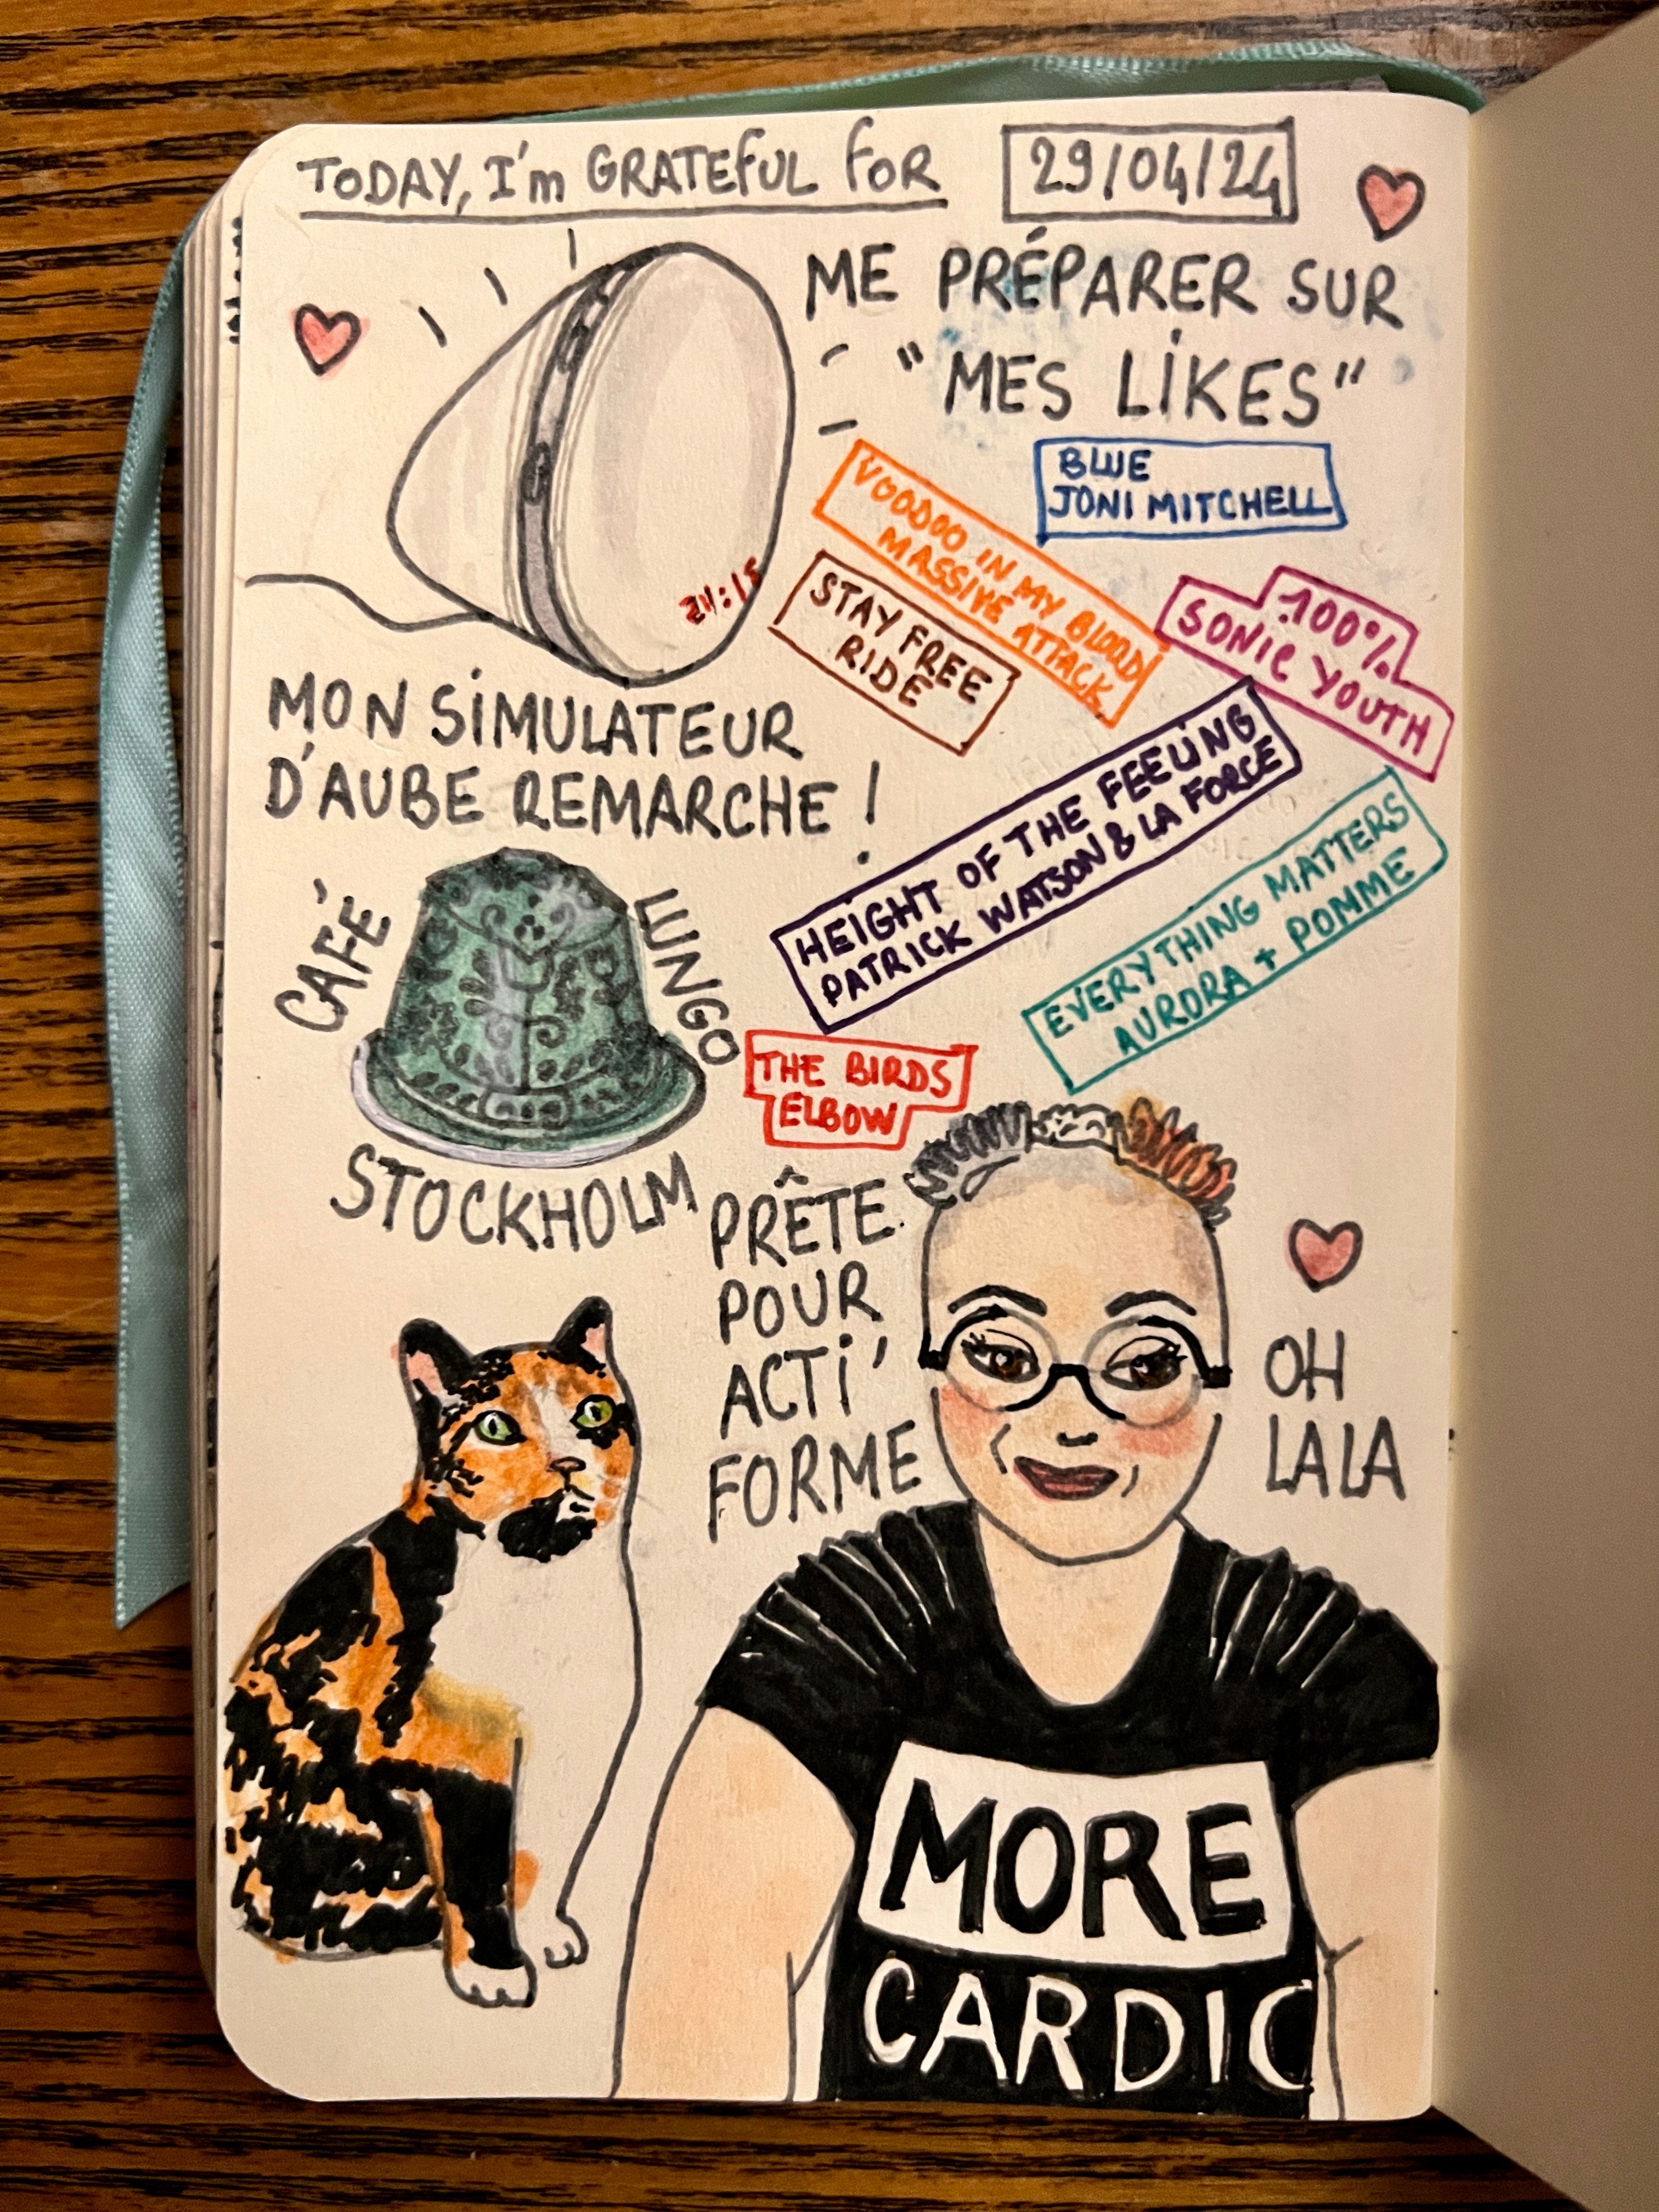 TODAY, I'm GRATEFUL FOR
29/04/24
ME PRÉPARER SUR
"MES LIKES"
BLUE
JONI MITCHELL
VOODOO IN MY BLOOD
MASSIVE ATTACK
100%
SONIC YOUTH
STAY FREE
RIDE
HEIGHT OF THE FEELING
PATRICK WATSON & LA FORCE
EVERYTHING MATTERS
AURORA + POMME
THE BIRDS
ELBOW
MON SIMULATEUR
D'AUBE REMARCHE !
CAFÉ
LUNGO
STOCKHOLM
PRÊTE
POUR
ACTI'
FORME
OH
LALA
MORE
CARDIO